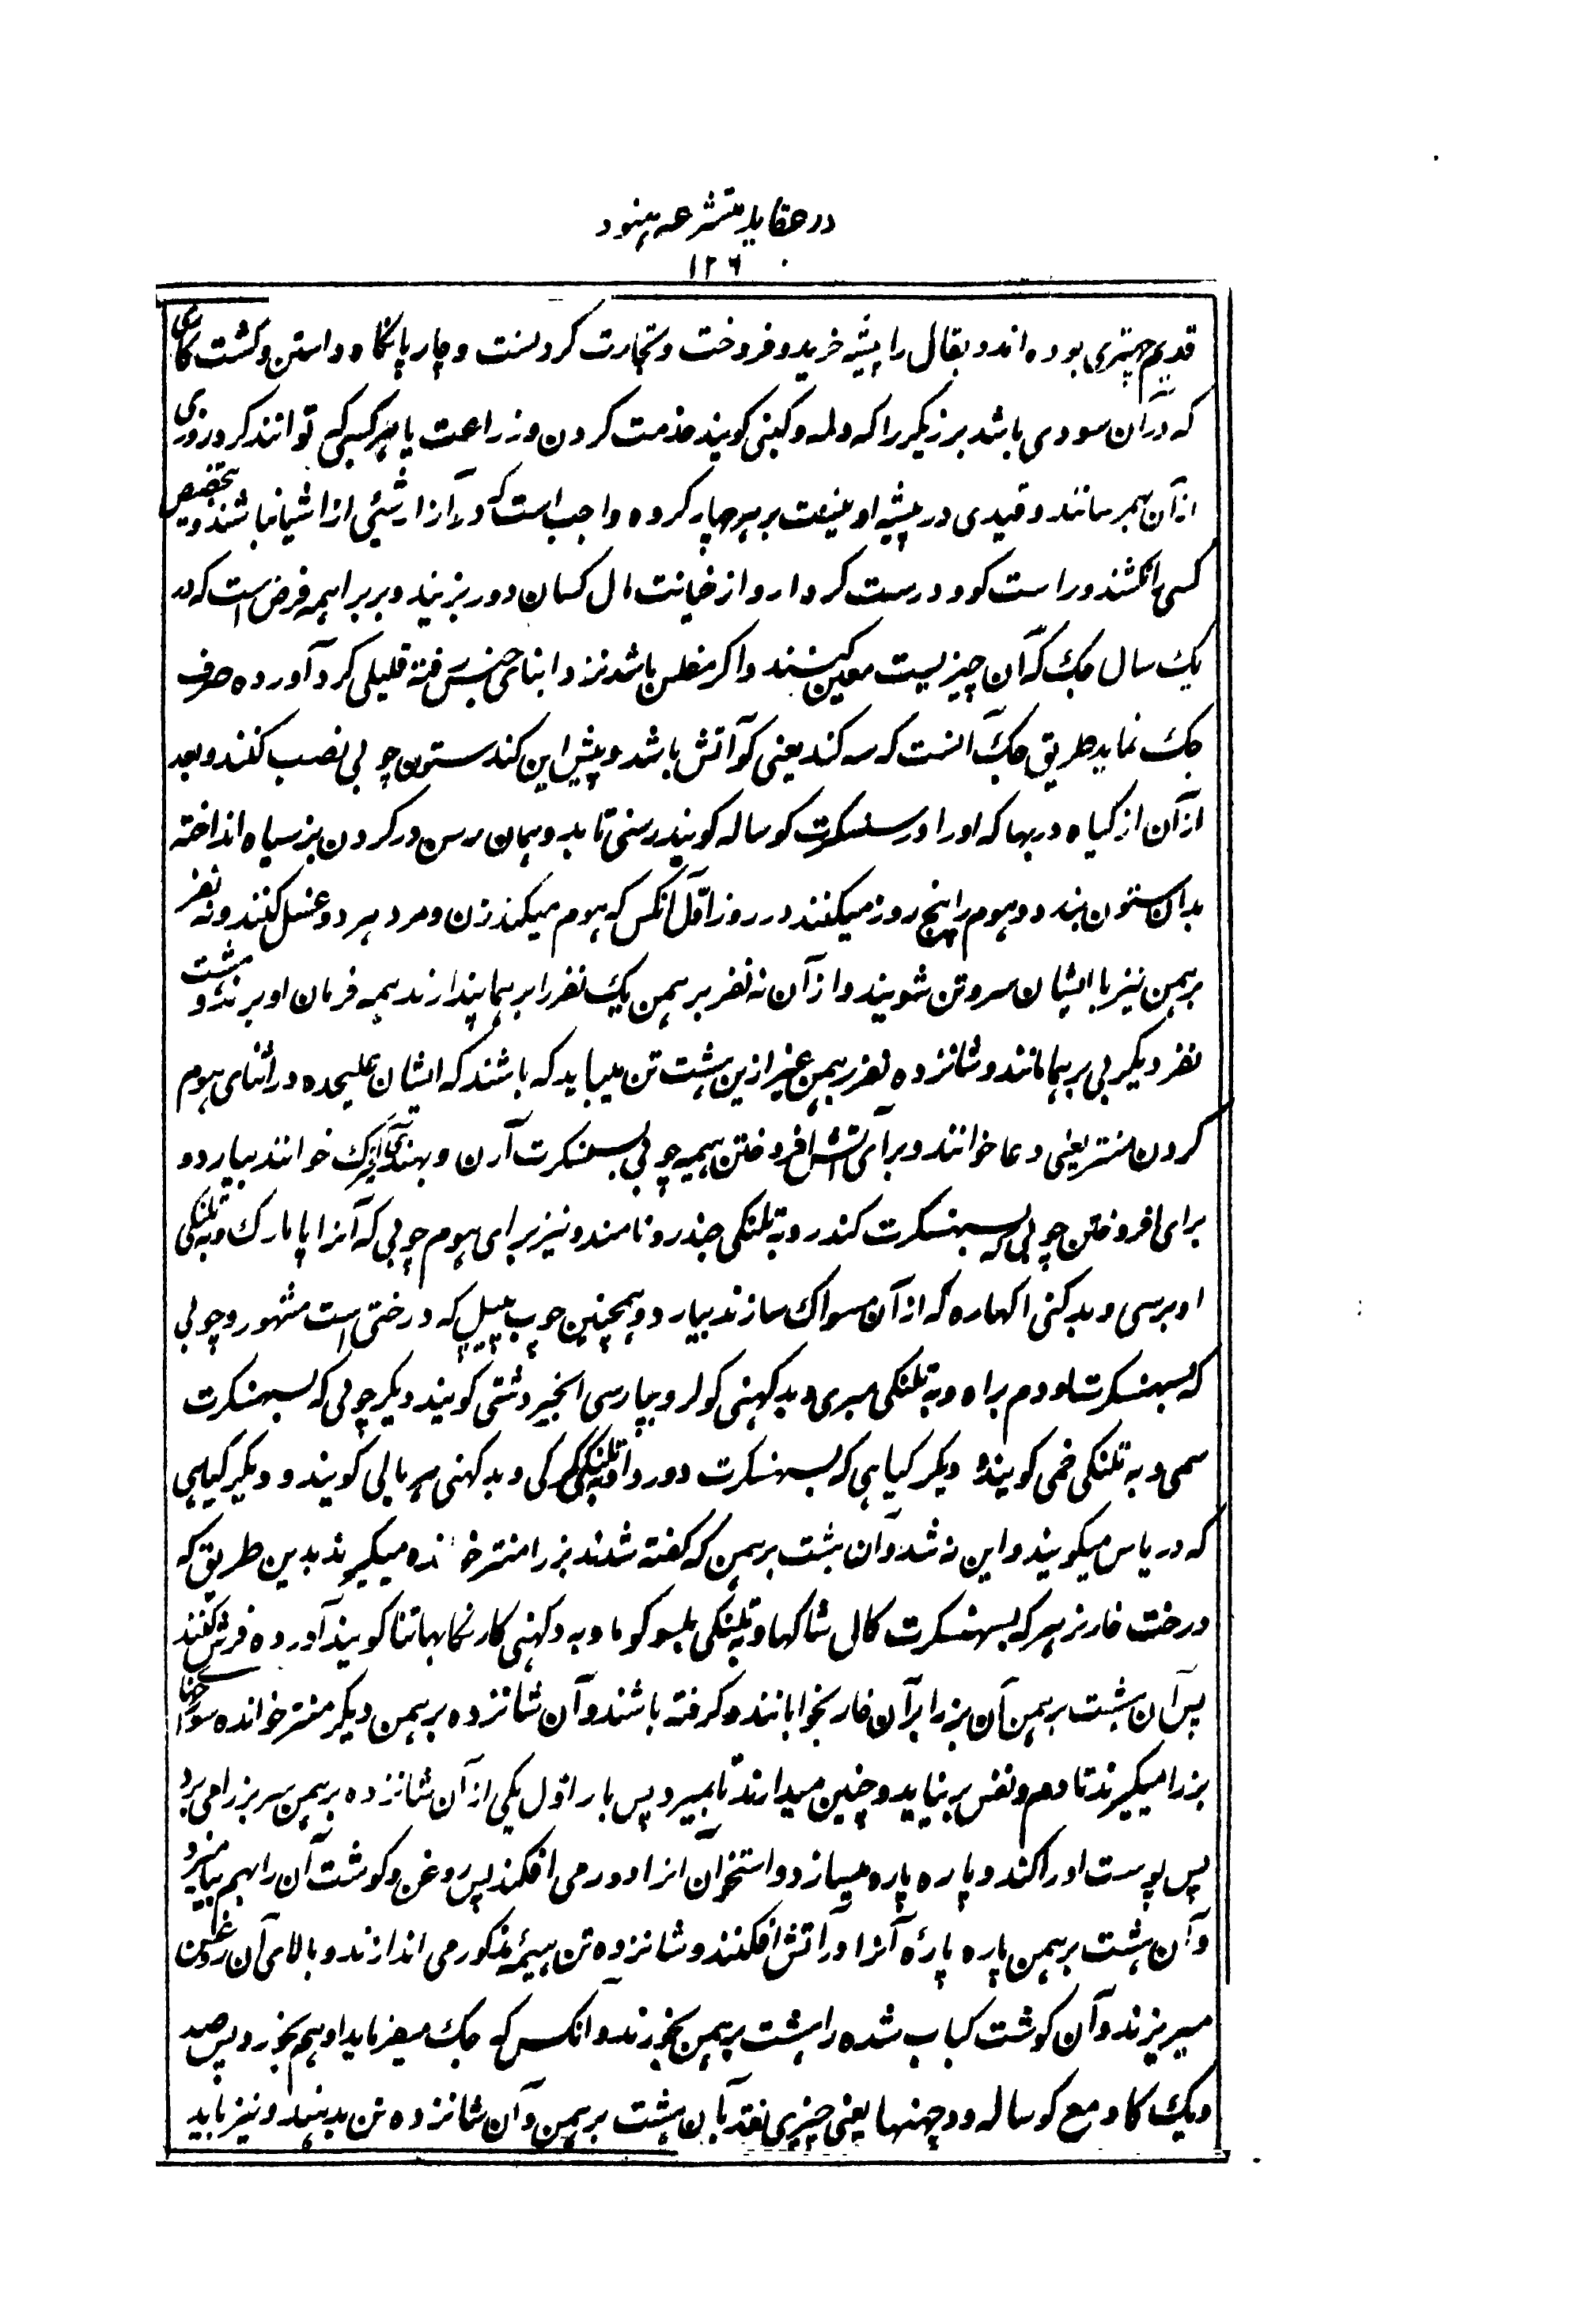 در عقاید متشرعه هنود
۱۲۶
قدیم چهتری بوده اند و بقال را پیشه خرید و فروخت و تجارت کردنست و چارپا نگاه داشتن و کشت کاری
که در آن سودی باشد برزیگر را که ولمه و کنبی گویند خدمت کردن و زراعت یا هر کسبی که توانند کرد و روزی
از آن بهم رسانند و قیدی در پیشه او نیست بر هر چهار گروه واجب است که در آزار شیئی از اشیا نباشند و بتخصیص
کسی را نکشند و راست گو و درست کردار و از خیانت مال کسان دور بزیند و بر براهمه فرض است که در
یک سال جک که آن چیزیست معین کنند و اگر مفلس باشد نزد ابنای جنس رفته قلیلی گرد آورده صرف
جک نماید طریق جک آنست که سه کند یعنی گو آتش باشد و پیش این کند ستون چوبی نصب کنند و بعد
از آن از گیاه دربها که او را در سنسکرت کوساله گویند رسنی تابد و همان رسن در گردن بز سیاه انداخته
بدان ستون بندد و هوم را پنج روز میکنند در روز اول آنکس که هوم میکند زن و مرد هر دو غسل کنند و نه نفر
برهمن نیز با ایشان سر و تن شویند و از آن نه نفر برهمن یک نفر را برهما پندارند همه فرمان او برند و هشت
نفر دیگر پی برهما مانند و شانزده نفر برهمن غیر ازین هشت تن میباید که باشند که ایشان علیحده در اثنای هوم
کردن منتر یعنی دعا خوانند و برای آتش افروختن همیه چوبی بسنسکرت آرن و بهندی آک خوانند بیارد و
برای افروختن چوبی که بسهنسکرت کندر و به تلنکی جندرو نامند و نیز برای هوم چوبی که آنرا پامارک و به تلنکی
اوبرسی و بدکنی اکهاره که از آن مسواک سازند بیارد و همچنین چوب پیپل که درختی است مشهور و چوبی
که بسهنسکرت اودم براه و به تلنکی میری و بدکهنی کولر و بپارسی انجیر دشتی گویند دیگر چوبی که بسهنسکرت
سمی و به تلنکی خمی گویند و دیگر گیاهی که بسهنسکرت دوروا و به تلنکی گرکی و بدکهنی هریالی گویند و دیگر گیاهی
که دریاس میگویند و این نه شد و آن هشت برهمن که گفته شدند بز را منتر خوانده میگیرند بدین طریق که
درخت خار نر هر که بسهنسکرت کال شاکها و به تلنکی بلسو کوما و به دکهنی کارنکا بهاتنا گویند آورده فرش کنند
پس آن هشت برهمن آن بز را بر آن خار بخوابانند و گرفته باشند و آن شانزده برهمن دیگر منتر خوانده سوراخهای
بز را میگیرند تا دم و نفس بر نیاید و چنین میدارند تا بمیرد پس بار اول یکی از آن شانزده برهمن سر بز را می برد
پس پوست او را کند و پاره پاره میسازد و استخوان آنرا دور می افکند پس روغن و گوشت آن را بهم بیامیزد
و آن هشت برهمن پاره پارهٔ آنرا در آتش افکنند و شانزده تن هیمهٔ مذکور می اندازند و بالای آن روغن
میریزند و آن گوشت کباب شده را هشت برهمن بخورند و آنکس که جک میفرماید او هم بخورد پس صد
و یک گاو مع گوساله و دچهنها یعنی چیزی نقد بآن هشت برهمن و آن شانزده تن بدهند و نیز باید